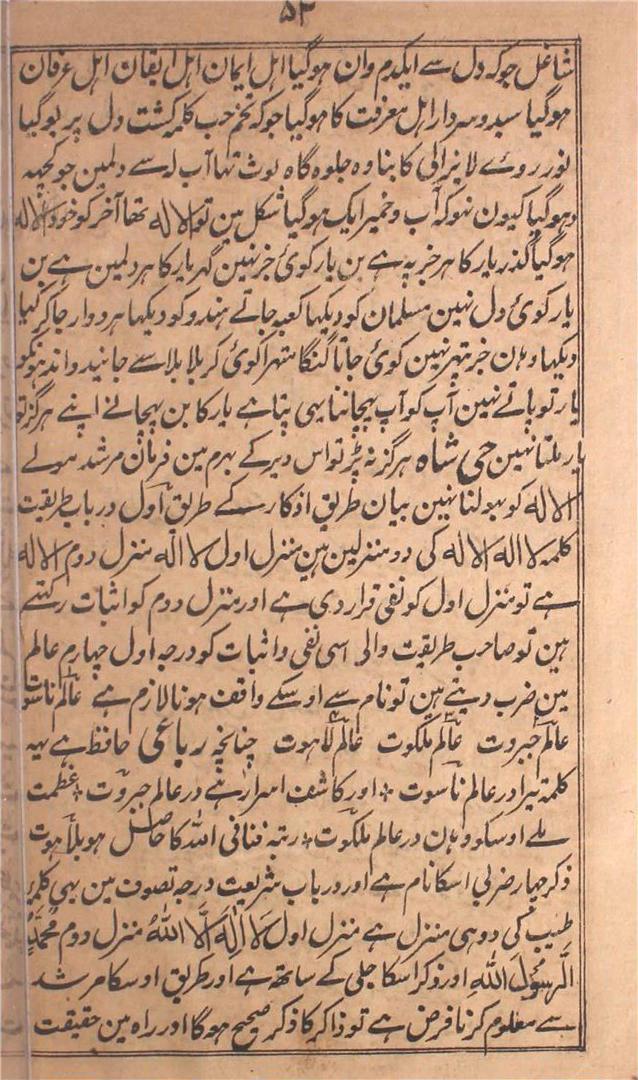 ۵۲
شاغل جو کہ دل سے ایکدم وان ہوگیا اہل ایمان اہل ایقان اہل عرفان
ہوگیا سید و سردار اہل معرفت کا ہوگیا جو کہ تخم حب کلمہ کشت دل پر بوگیا
نور روے لایزالی کا بنا وہ جلوہ گاہ لوث تہا آب لسے دلمین جو کچہہ
دہوگیا کیون نہو کہ آب و خمیر ایک ہوگیا شکل مین تو الا لہ تھا آخر کو خود الا لہ
ہوگیا گذر یار کا ہر خبر پہ ہے بن یار کوئ خر نہین گہر یار کا ہر دلمین ہے بن
یار کوئ دل نہین مسلمان کو دیکہا کعبہ جاتے ہندو کو دیکہا ہر دوار جا کر کیا
دیکہا وہان خبر تہر نہین کوئ جاتا گنگا متہرا کوئ کربلا بلا سے جانیدو اندہونکو
یار تو پاتے نہین آپ کو آپ پہچاننا یہی پتا ہے یار کا بن پہچانے اپنے ہرگز تو
یار ملتا نہین حی شاہ ہرگز نہ پڑ تو اس دیر کے بہرم مین فرمان مرشد ہولے
الا لہ کو بہولنا نہین بیان طریق اذکار کے طریق اول در باب طریقت
کلمہ لا الہ الا لہ کی دو منزلین ہین منزل اول لا الہ منزل دوم الا لہ
ہے تو منزل اول کو نفی قرار دی ہے اور منزل دوم کو اثبات رکہتے
ہین تو صاحب طریقت والی اسی نفی و اثبات کو درجہ اول چہارم عالم
مین ضرب دیتے ہین تو نام سے اوسکے واقف ہونا لازم ہے عالم ناسوت
عالم جبروت عالم ملکوت عالم لاہوت چنانچہ رباعی حافظ ہے یہہ
کلمہ تیرا در عالم ناسوت ؞ اور کاشف اسرار نہے در عالم جبروت ؞ عظمت
ملے اوسکو وہان در عالم ملکوت ؞ رتبہ فنا فی اللہ کا حاصل ہو بلاہوت
ذکر چہار ضربی اسکا نام ہے اور در باب شریعت درجہ تصوف مین بہی کلمہ
طیب کی دو ہی منزل ہے منزل اول لَا اِلٰہَ اِلَّا اللّٰہُ منزل دوم مُحَمَّدٌ
الرَّسُوْلُ اللّٰہِ اور ذکر اسکا جلی کے ساتھ ہے اور طریق اوسکا مرشد
سے معلوم کرنا فرض ہے تو ذاکر کا ذکر صحیح ہوگا اور راہ مین حقیقت